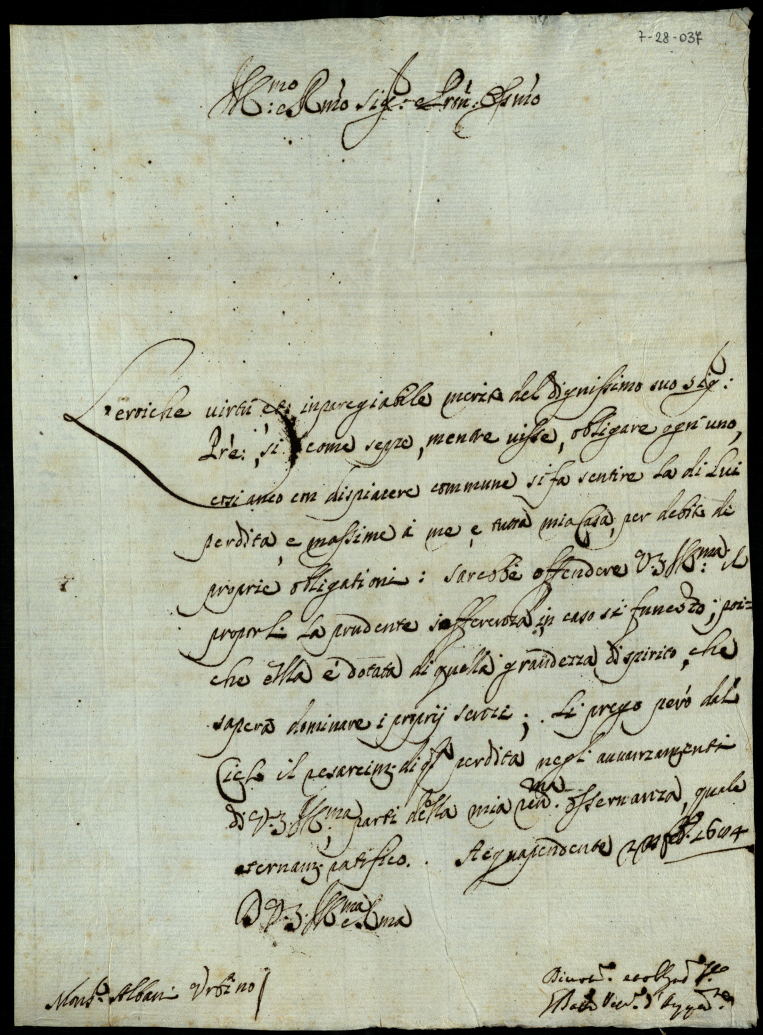 7-28-037
Ill.mo e Rmo Sig.r e Prñ. Ossmo
L'eroiche virtù et inparegiabile merito del dignissimo suo Sig:
Prē:, si come seppe, mentre visse, obligare ogn'uno,
così anco con dispiacere commune si fa sentire la di lui
perdita, e massime à me, e tutta mia Casa, per debito di
proprie obligationi: sarebbe offendere V.S. Ill.ma il
proporli la prudente sofferenza in caso si funesto; poi=
che ella è dotata di quella grandezza di spirito, che
saperà dominare i proprij sensi; Li prego però dal
Cielo il resarcim. di qta perdita negli avvanzamenti
di V.S. Ill.ma, parti della mia osservanza, quale
eternam. ratifico. Acquapendente 1684
D V.S. Ill.ma e Rma
Mons.r Albani Urbino
Divot.o et obl. S.re